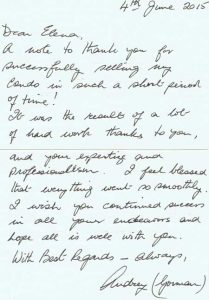 4th June 2015
Dear Elena,
A note to thank you for
successfully selling my
condo in such a short period
of time!
It was the result of a lot
of hard work thanks to you,
and your expertise and
professionalism. I feel blessed
that everything went so smoothly.
I wish you continued success
in all your endeavors and
hope all is well with you.
With Best Regards – always,
Audrey (Gorman)